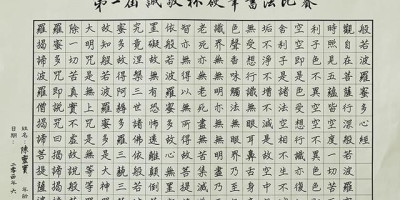 第一屆誠敬杯硬筆書法比賽
般若波羅蜜多心經
觀自在菩薩行深般若波羅
時照見五蘊皆空度一切苦
利子色不異空空不異色色
空空即是色受想行識亦復
舍利子是諸法空相不生不
垢不淨不增不減是故空中
無受想行識無眼耳鼻舌身
色聲香味觸法無眼界乃至
識界無無明亦無無明盡乃
老死亦無老死盡無苦集滅
智亦無得以無所得故菩提
依般若波羅蜜多故心無罣
罣礙故無有恐怖遠離顛倒
究竟涅槃三世諸佛依般若
蜜多故得阿耨多羅三藐三
故知般若波羅蜜多是大神
大明咒是無上咒是無等等
除一切苦真實不虛故說般
羅蜜多咒即說咒曰揭諦揭
羅揭諦波羅僧揭諦菩提薩
姓名：陳 寶 年齡
日期：二零 年六